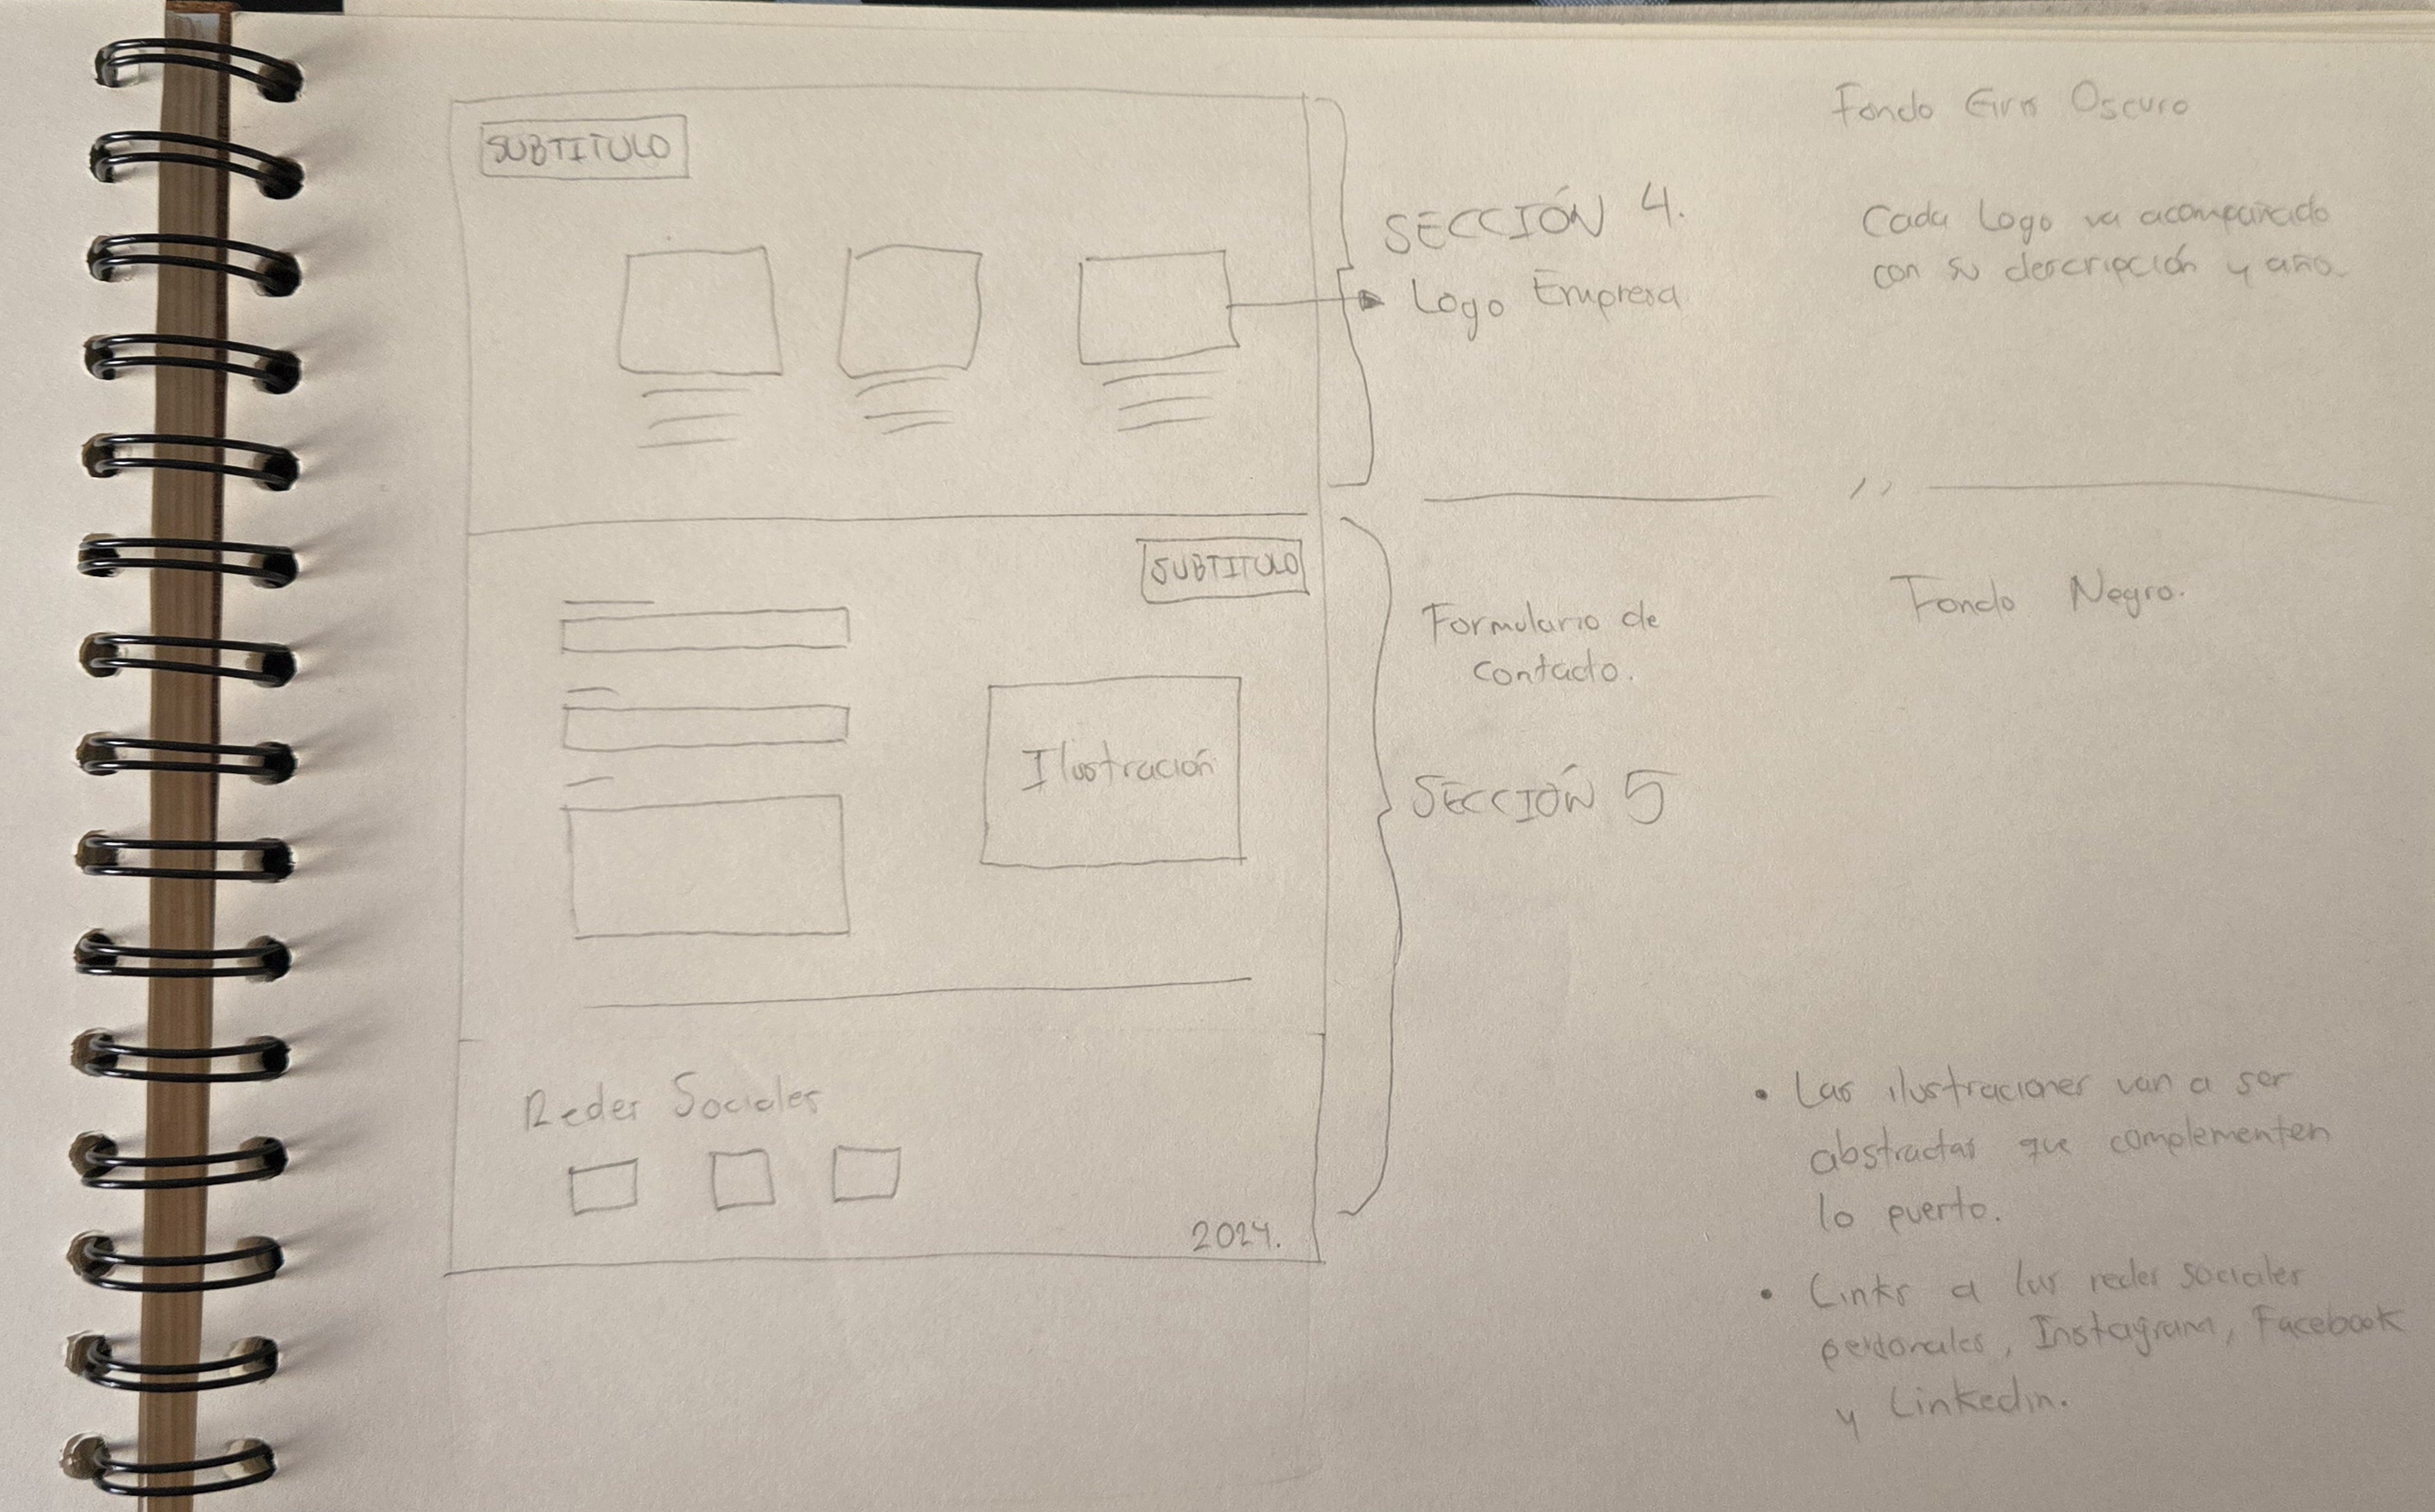 SUBTITULO
SECCIÓN 4.
Logo Empresa
Fondo Gris Oscuro
Cada Logo va acompañado
con su descripción y año.
SUBTITULO
Formulario de
contacto.
Fondo Negro.
Ilustración
SECCIÓN 5
Redes Sociales
2024.
• Las ilustraciones van a ser
abstractas que complementen
lo puesto.
• Links a las redes sociales
personales, Instagram, Facebook
y Linkedin.